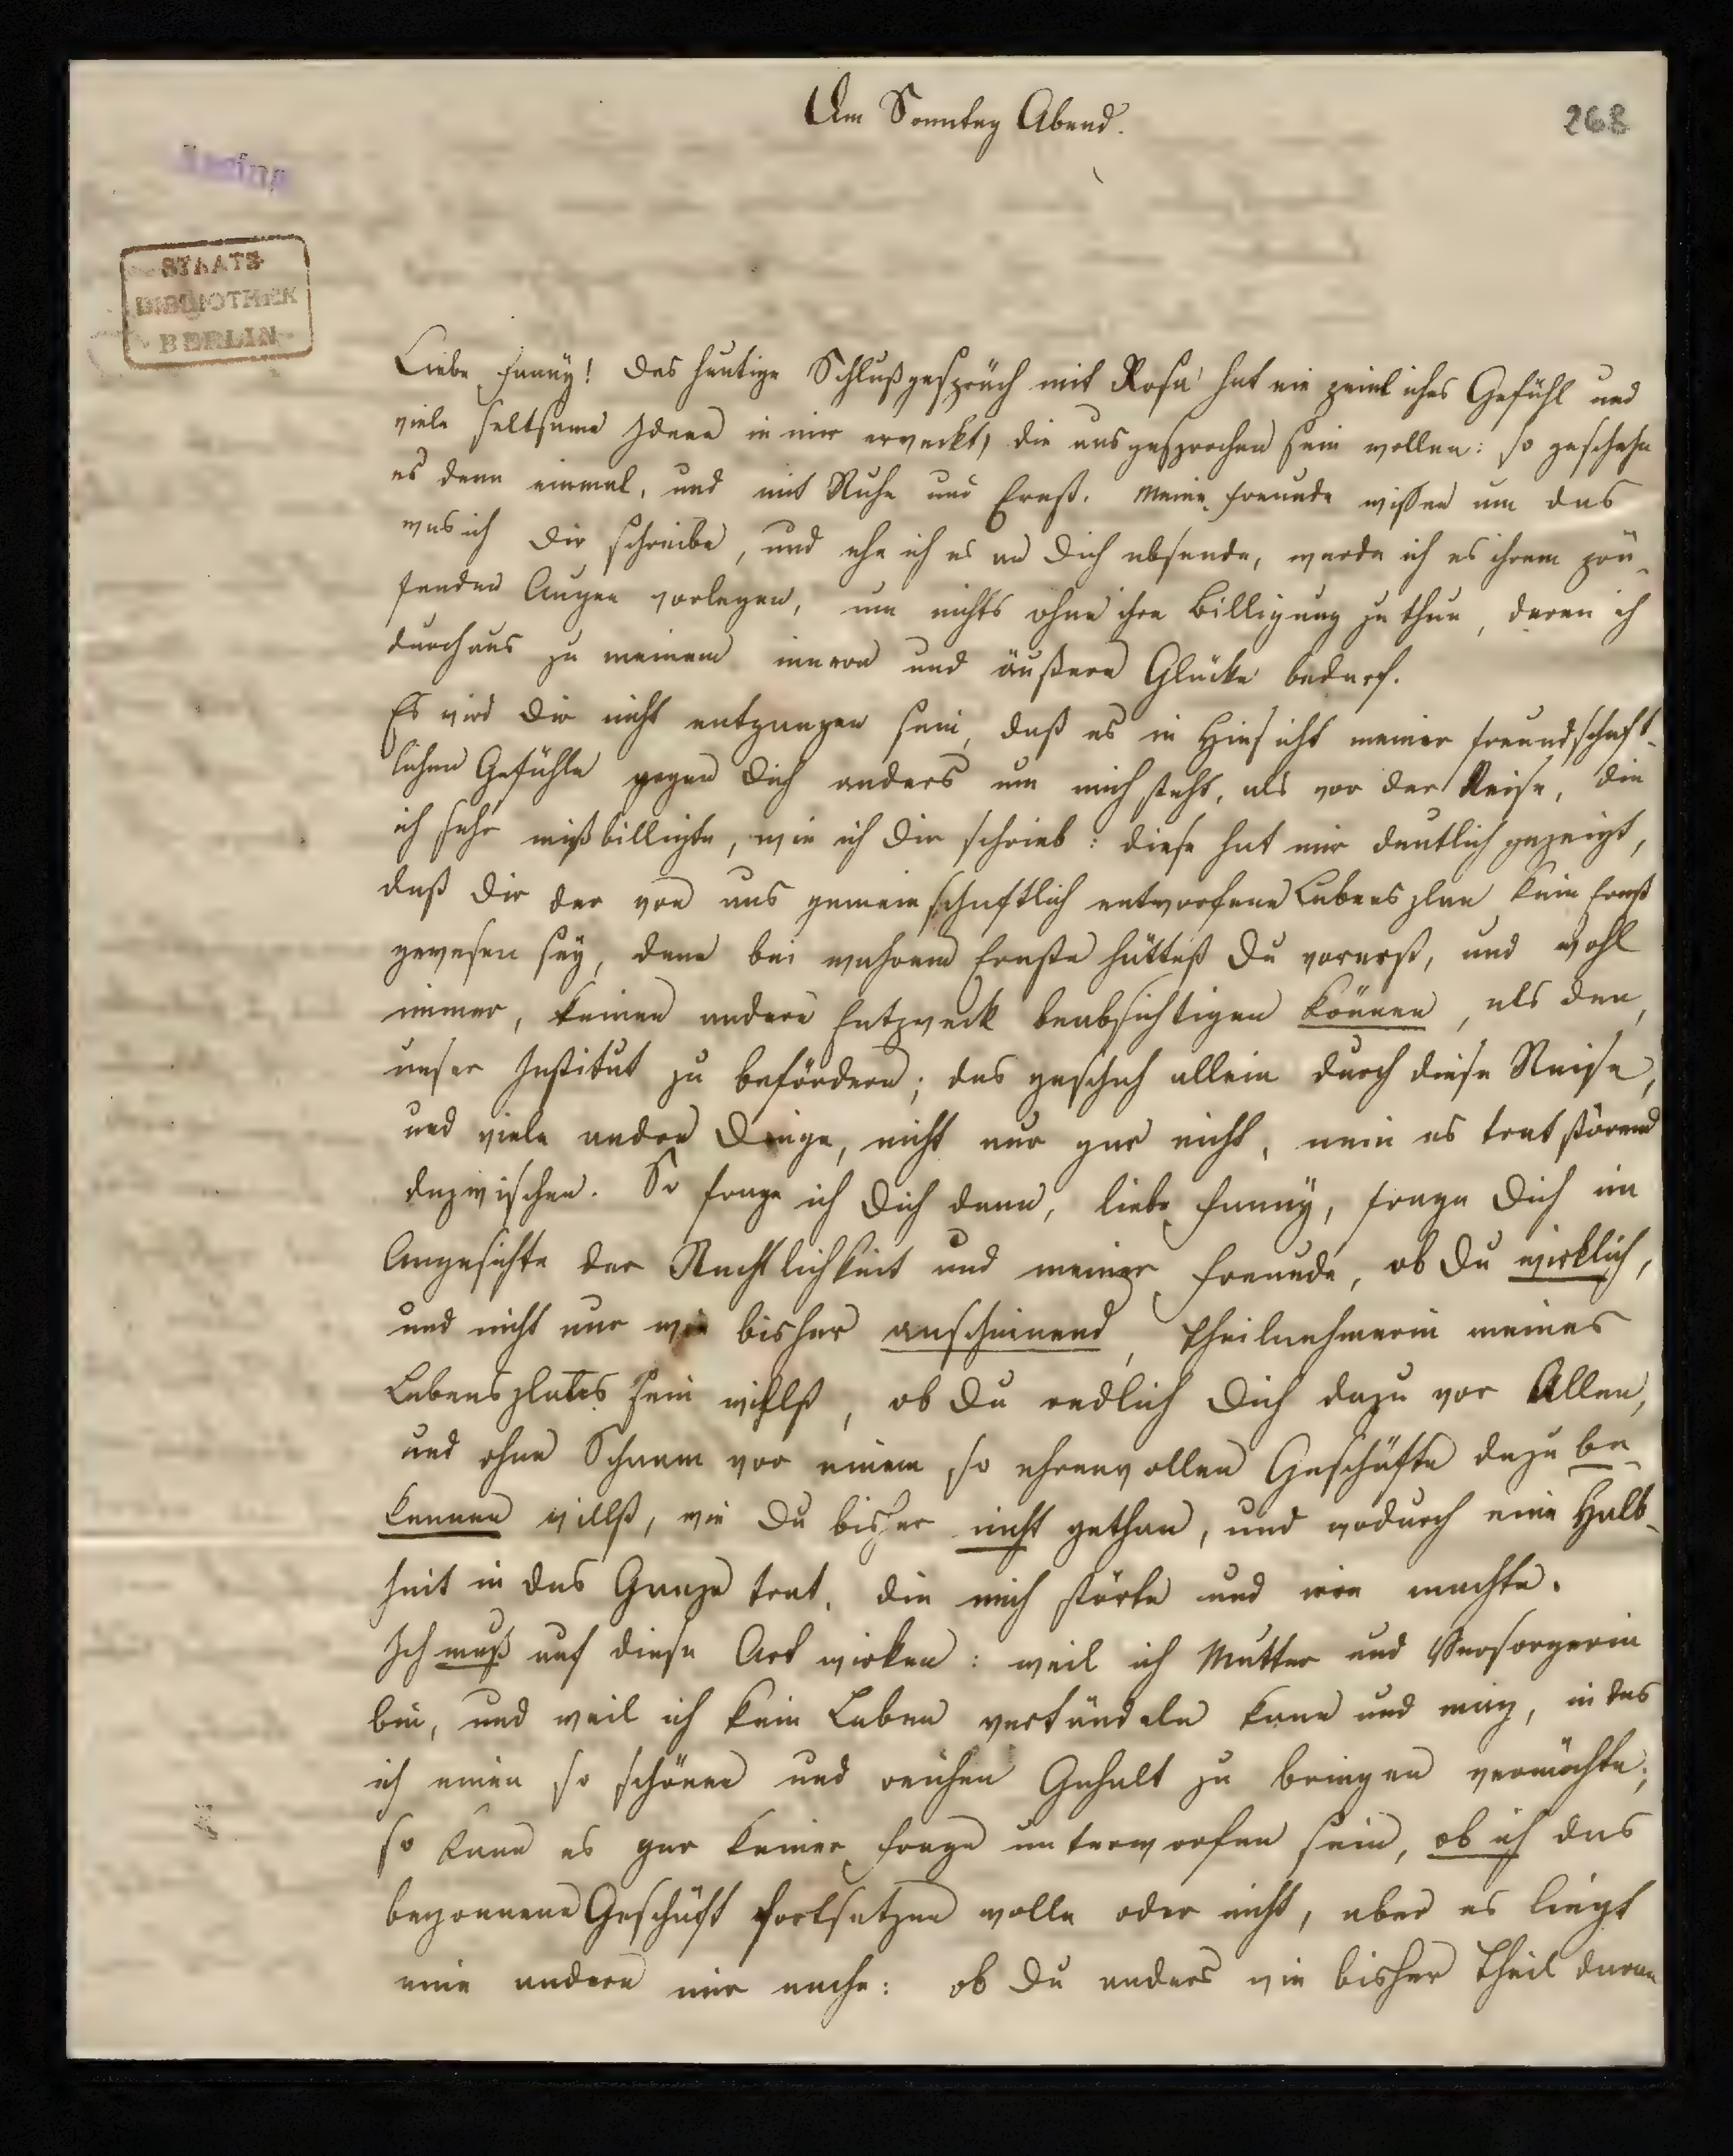 Am Sonntag Abend.
268
STAATS
BIBLIOTHEK
BERLIN
Liebe Fanny! Das heutige Schlußgespräch mit Rosa hat ein peinliches Gefühl und
viele seltsame Ideen in mir erweckt, die ausgesprochen sein wollen: so geschehe
es denn einmal, und mit Ruhe und Ernst. Meine Freunde wissen um das
was ich Dir schreibe, und ehe ich es an Dich absende, werde ich es ihrem prü-
fenden Augen vorlegen, um nichts ohne ihre Billigung zu thun, deren ich
durchaus zu meinem innern und äußern Glücke bedarf.
Es wird Dir nicht entgangen sein, daß es in Hinsicht meiner freundschaft-
lichen Gefühle gegen Dich anders um mich steht, als vor der Reise, die
ich sehr mißbilligte, wie ich Dir schrieb: diese hat mir deutlich gezeigt,
daß Dir der von uns gemeinschaftlich entworfene Lebensplan kein Ernst
gewesen sey, denn bei wahrem Ernste hättest Du vorerst, und wohl
immer, keinen andern Entzweck beabsichtigen können, als den,
unser Institut zu befördern; das geschah allein durch diese Reise,
und viele andre Dinge, nicht nur gar nicht, nein es trat störend
dazwischen. So frage ich Dich denn, liebe Fanny, frage Dich im
Angesichte der Rechtlichkeit und meiner Freunde, ob Du wirklich,
und nicht nur wie bisher anscheinend, Theilnehmerin meines
Lebensplanes sein willst, ob Du redlich Dich dazu vor Allen,
und ohne Schaam vor einem so ehrenvollen Geschäfte dazu be-
kennen willst, wie Du bisher nicht gethan, und wodurch eine Halb-
heit in das Ganze trat, die mich störte und irre machte.
Ich muß auf diese Art wirken: weil ich Mutter und Versorgerin
bin, und weil ich kein Leben vertändeln kann und mag, in das
ich einen so schönen und reichen Gehalt zu bringen vermöchte;
so kann es gar keiner Frage unterworfen sein, ob ich das
begonnene Geschäft fortsetzen wolle oder nicht, aber es liegt
eine andere mir nahe: ob Du anders wie bisher Theil daran